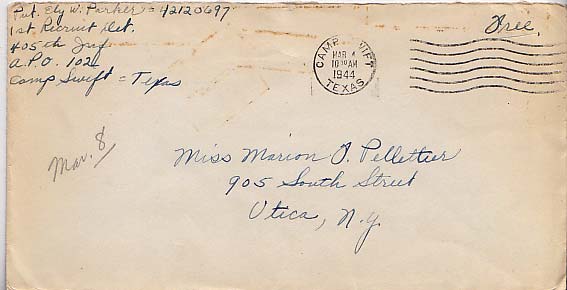 Pvt. Ely W. Parker = 42120697
1st Recruit Det.
405th Inf
A.P.O. 102
Camp Swift = Texas
Free.
CAMP SWIFT
MAR 4
10 AM
1944
TEXAS
Mar. 8
Miss Marion J. Pelletier
905 South Street
Utica, N.Y.